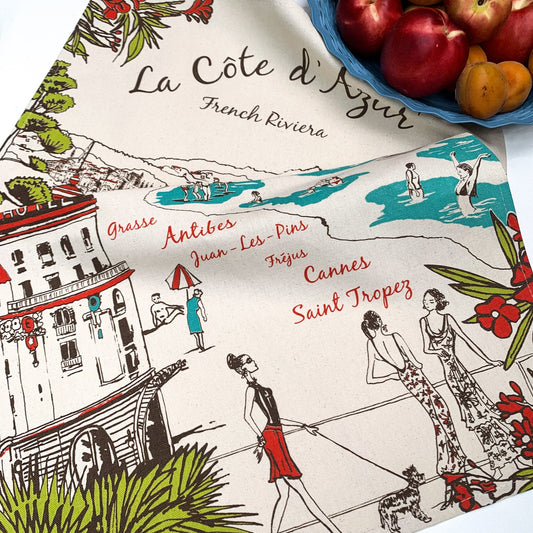 La Côte d'Azur
French Riviera
Grasse
Antibes
Juan-Les-Pins
Fréjus
Cannes
Saint Tropez
HOTEL